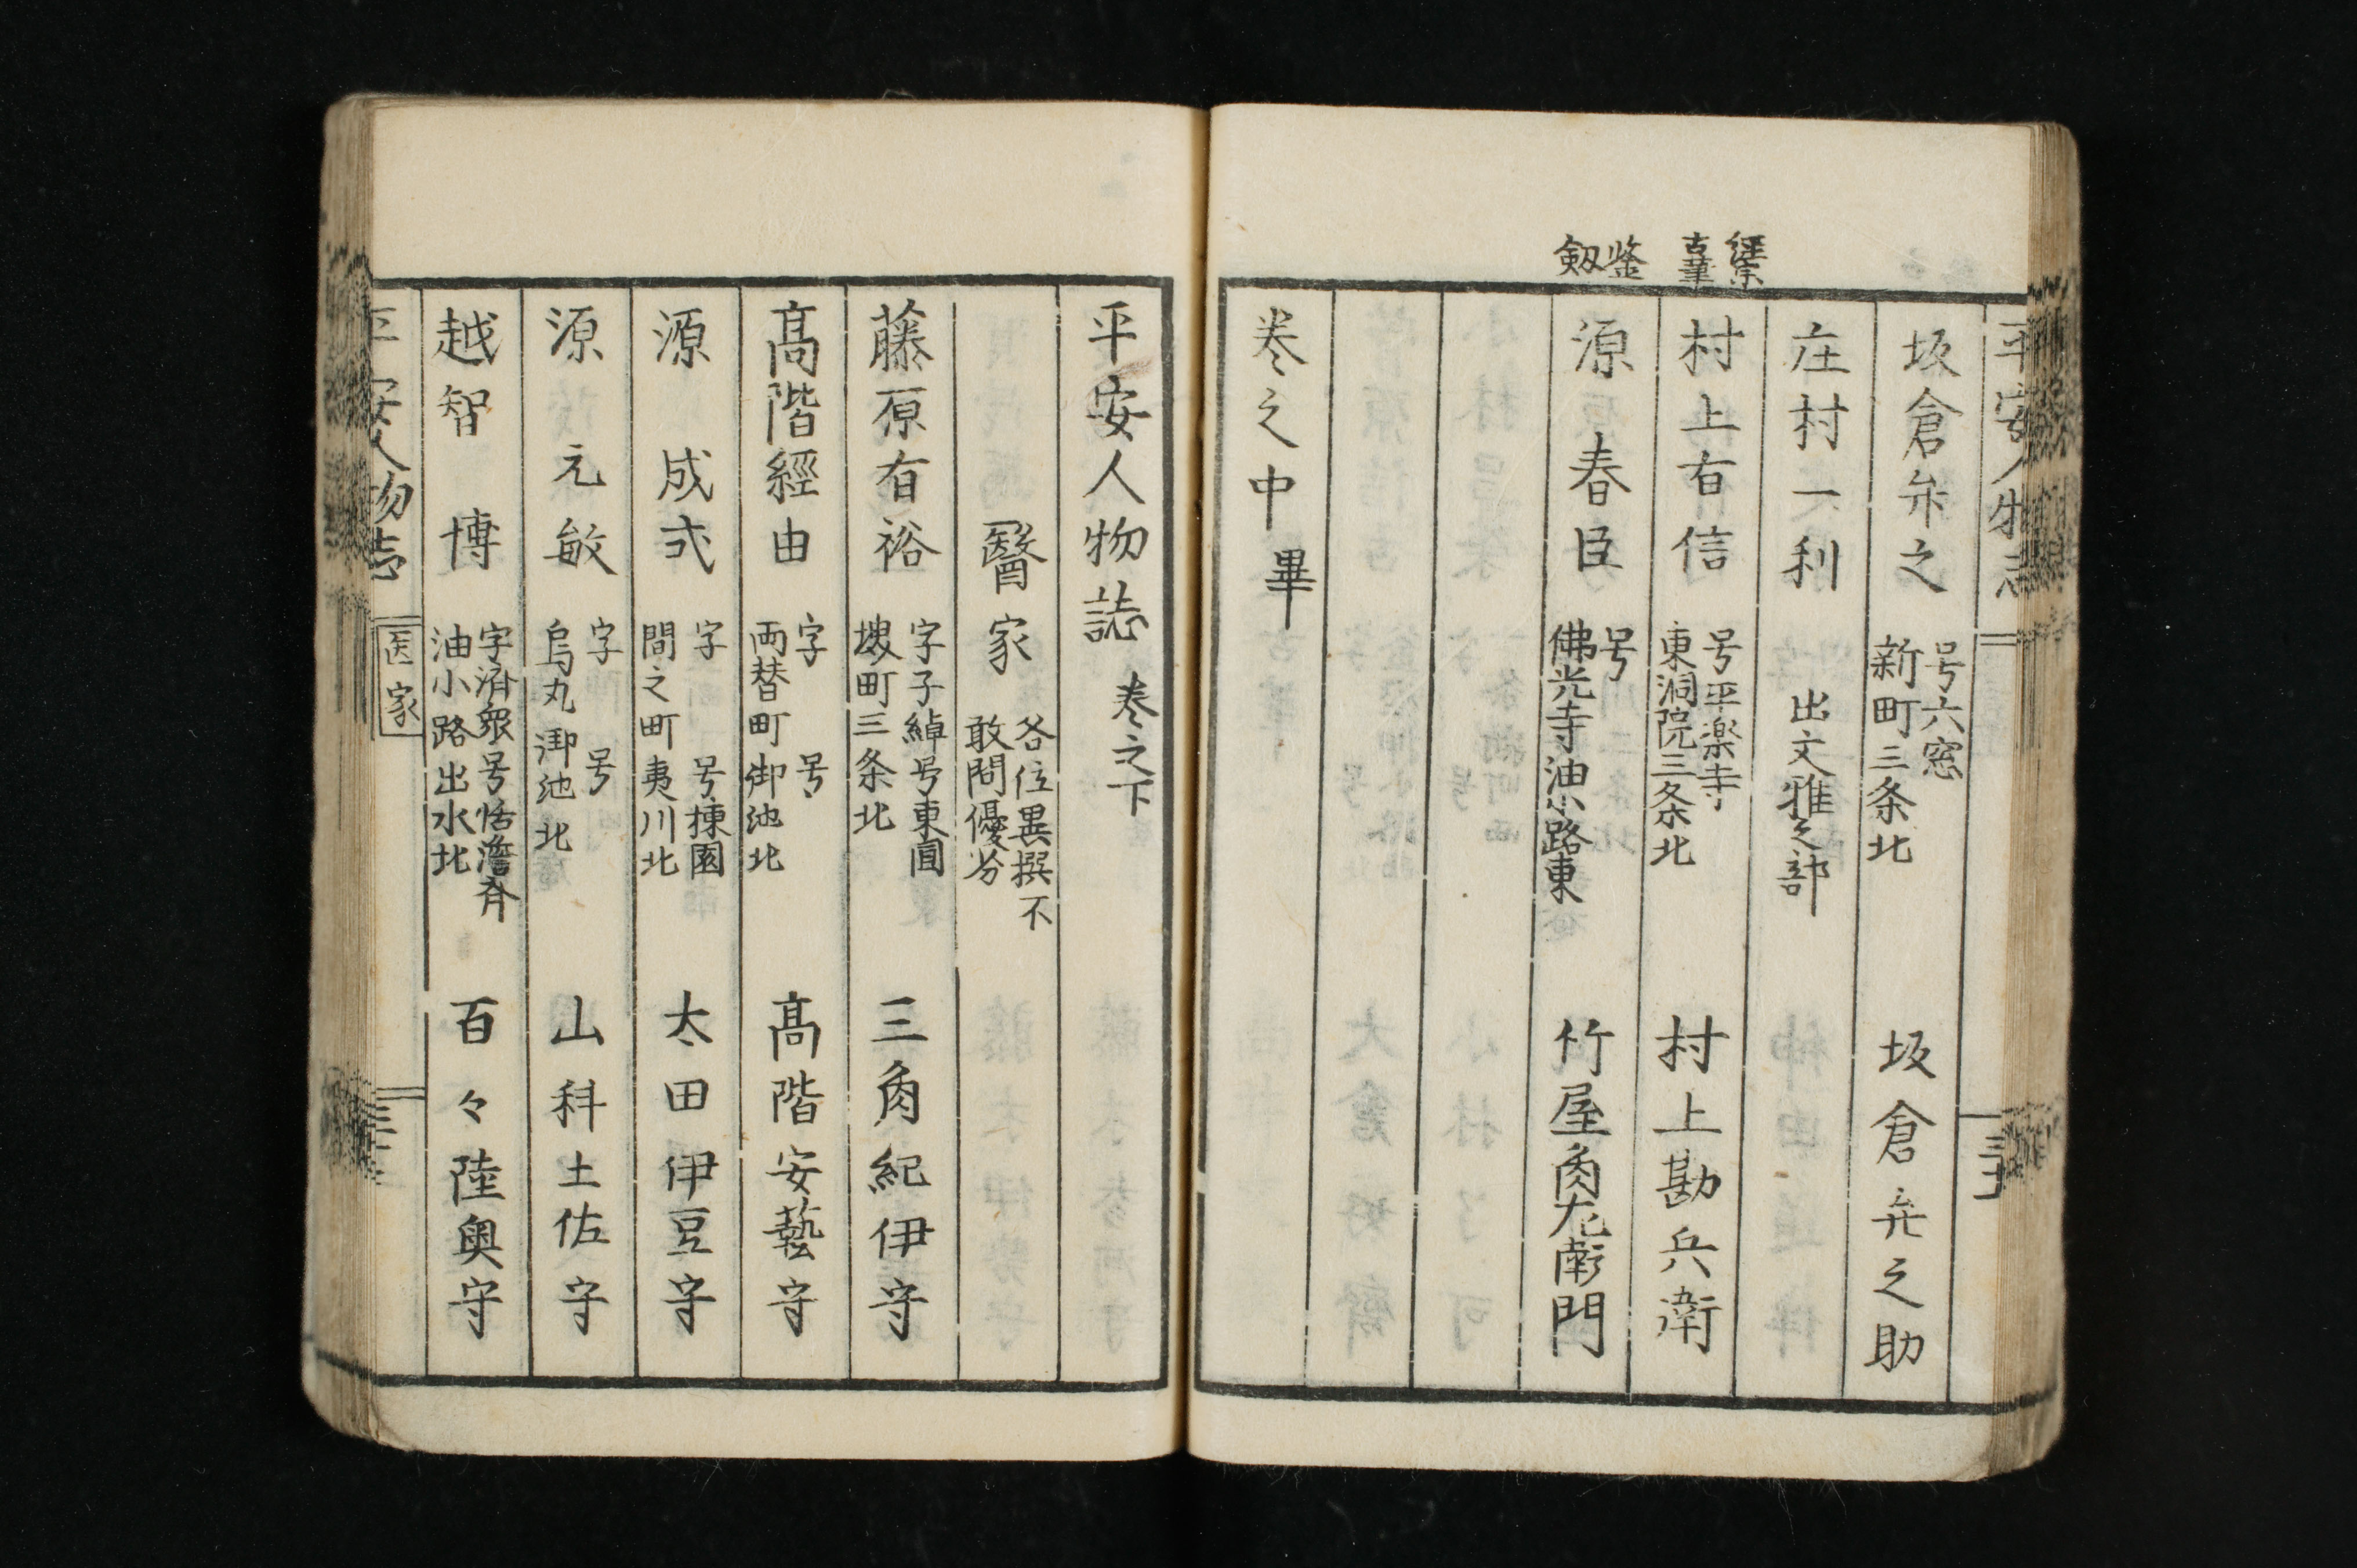 平安人物志
坂倉弁之
号六窓
新町三条北
坂倉弁之助
庄村一利
出文雅之部
古筆
村上有信
号平楽寺
東洞院三条北
村上勘兵衛
鑒
剱
源春臣
号
佛光寺油小路東
竹屋角左衛門
巻之中畢
平安人物誌 巻之下
醫家
各位異撰不
敢問優劣
藤原有裕
字子綽号東園
堺町三条北
三角紀伊守
髙階經由
字 号
両替町御池北
髙階安藝守
源成式
字 号棟園
間之町夷川北
太田伊豆守
源元敏
字 号
烏丸御池北
山科土佐守
越智博
字済衆号恬澹斉
油小路出水北
百々陸奥守
平安人物志
医家